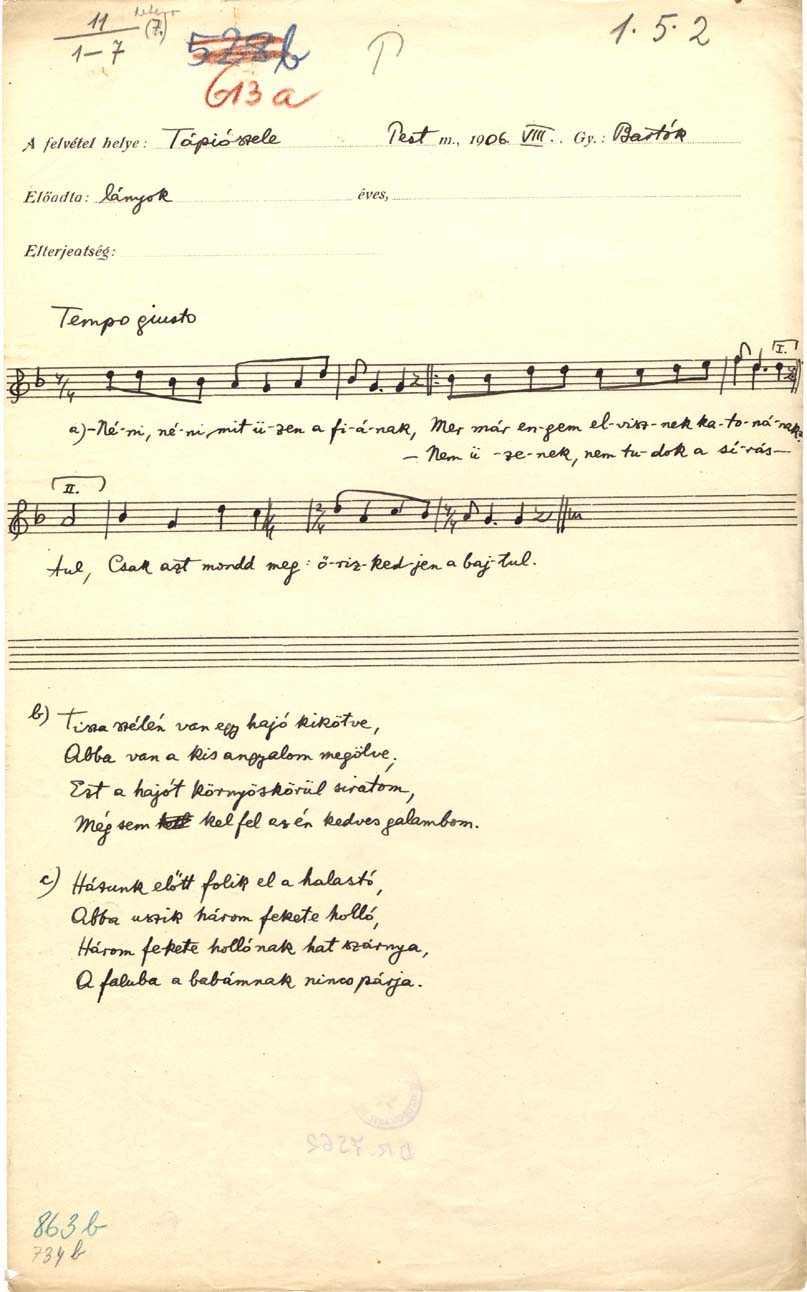 11 (7.)
1–7
528 b
613 a
1. 5. 2
A felvétel helye: Tápiószele Pest m., 1906 VIII. Gy.: Bartók
Előadta: lányok éves,
Elterjedtség:
Tempo giusto
I.
a) –Né-ni, né-ni, mit ü-zen a fi-á-nak, Mer már en-gem el-visz-nek ka-to-ná-nak.
– Nem ü-ze-nek, nem tu-dok a sí-rás–
II.
tul, Csak azt mondd meg: ő-riz-ked-jen a baj-tul.
b) Tisza szélén van egy hajó kikötve,
Abba van a kis angyalom megölve;
Ezt a hajót környöskörül siratom,
Még sem kel fel az én kedves galambom.
c) Házunk előtt folik el a halastó,
Abba uszik három fekete holló,
Három fekete hollónak hat szárnya,
A faluba a babámnak nincs párja.
863 b
734 b